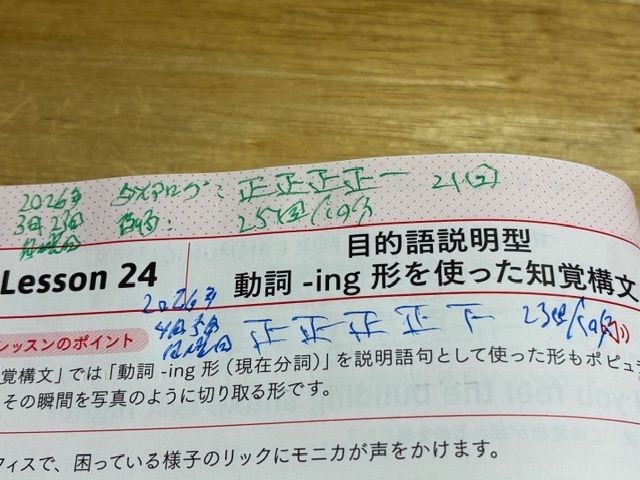 2026年 ダイアログ：正正正正一 21回
3月23日
月曜日 目的：25回/10分
Lesson 24
目的語説明型
動詞 -ing 形を使った知覚構文
2026年
4月5日
日曜日 正正正正下 23回/10分
レッスンのポイント
覚構文」では「動詞 -ing 形（現在分詞）」を説明語句として使った形もポピュ
その瞬間を写真のように切り取る形です。
フィスで、困っている様子のリックにモニカが声をかけます。